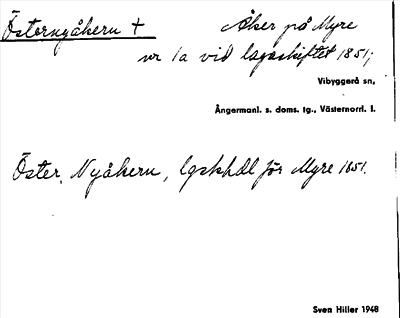 Östernyåkern + Åker på Myre
nr 1a vid lagaskiftet 1851;
Vibyggerå sn,
Ångermanl. s. doms. tg., Västernorrl. l.
Öster. Nyåkern, lgskhdl för Myre 1851.
Sven Hiller 1948